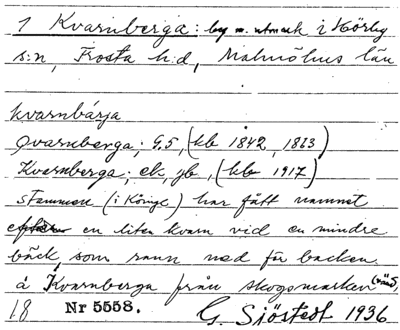 1 Kvarnberga: beg m. utmark i Hörby
s:n, Frosta h:d, Malmöhus län
kvarnbárja
Qvarnberga; G.5, (kb 1842, 1863)
Kvarnberga; ek, jb, (kb 1917)
stammen (i Könige) har fått namnet
efter en liten kvarn vid en mindre
bäck, som rann ned för backen.
å Kvarnberga från skogsmarken
18 Nr 5558. G. Sjöstedt 1936